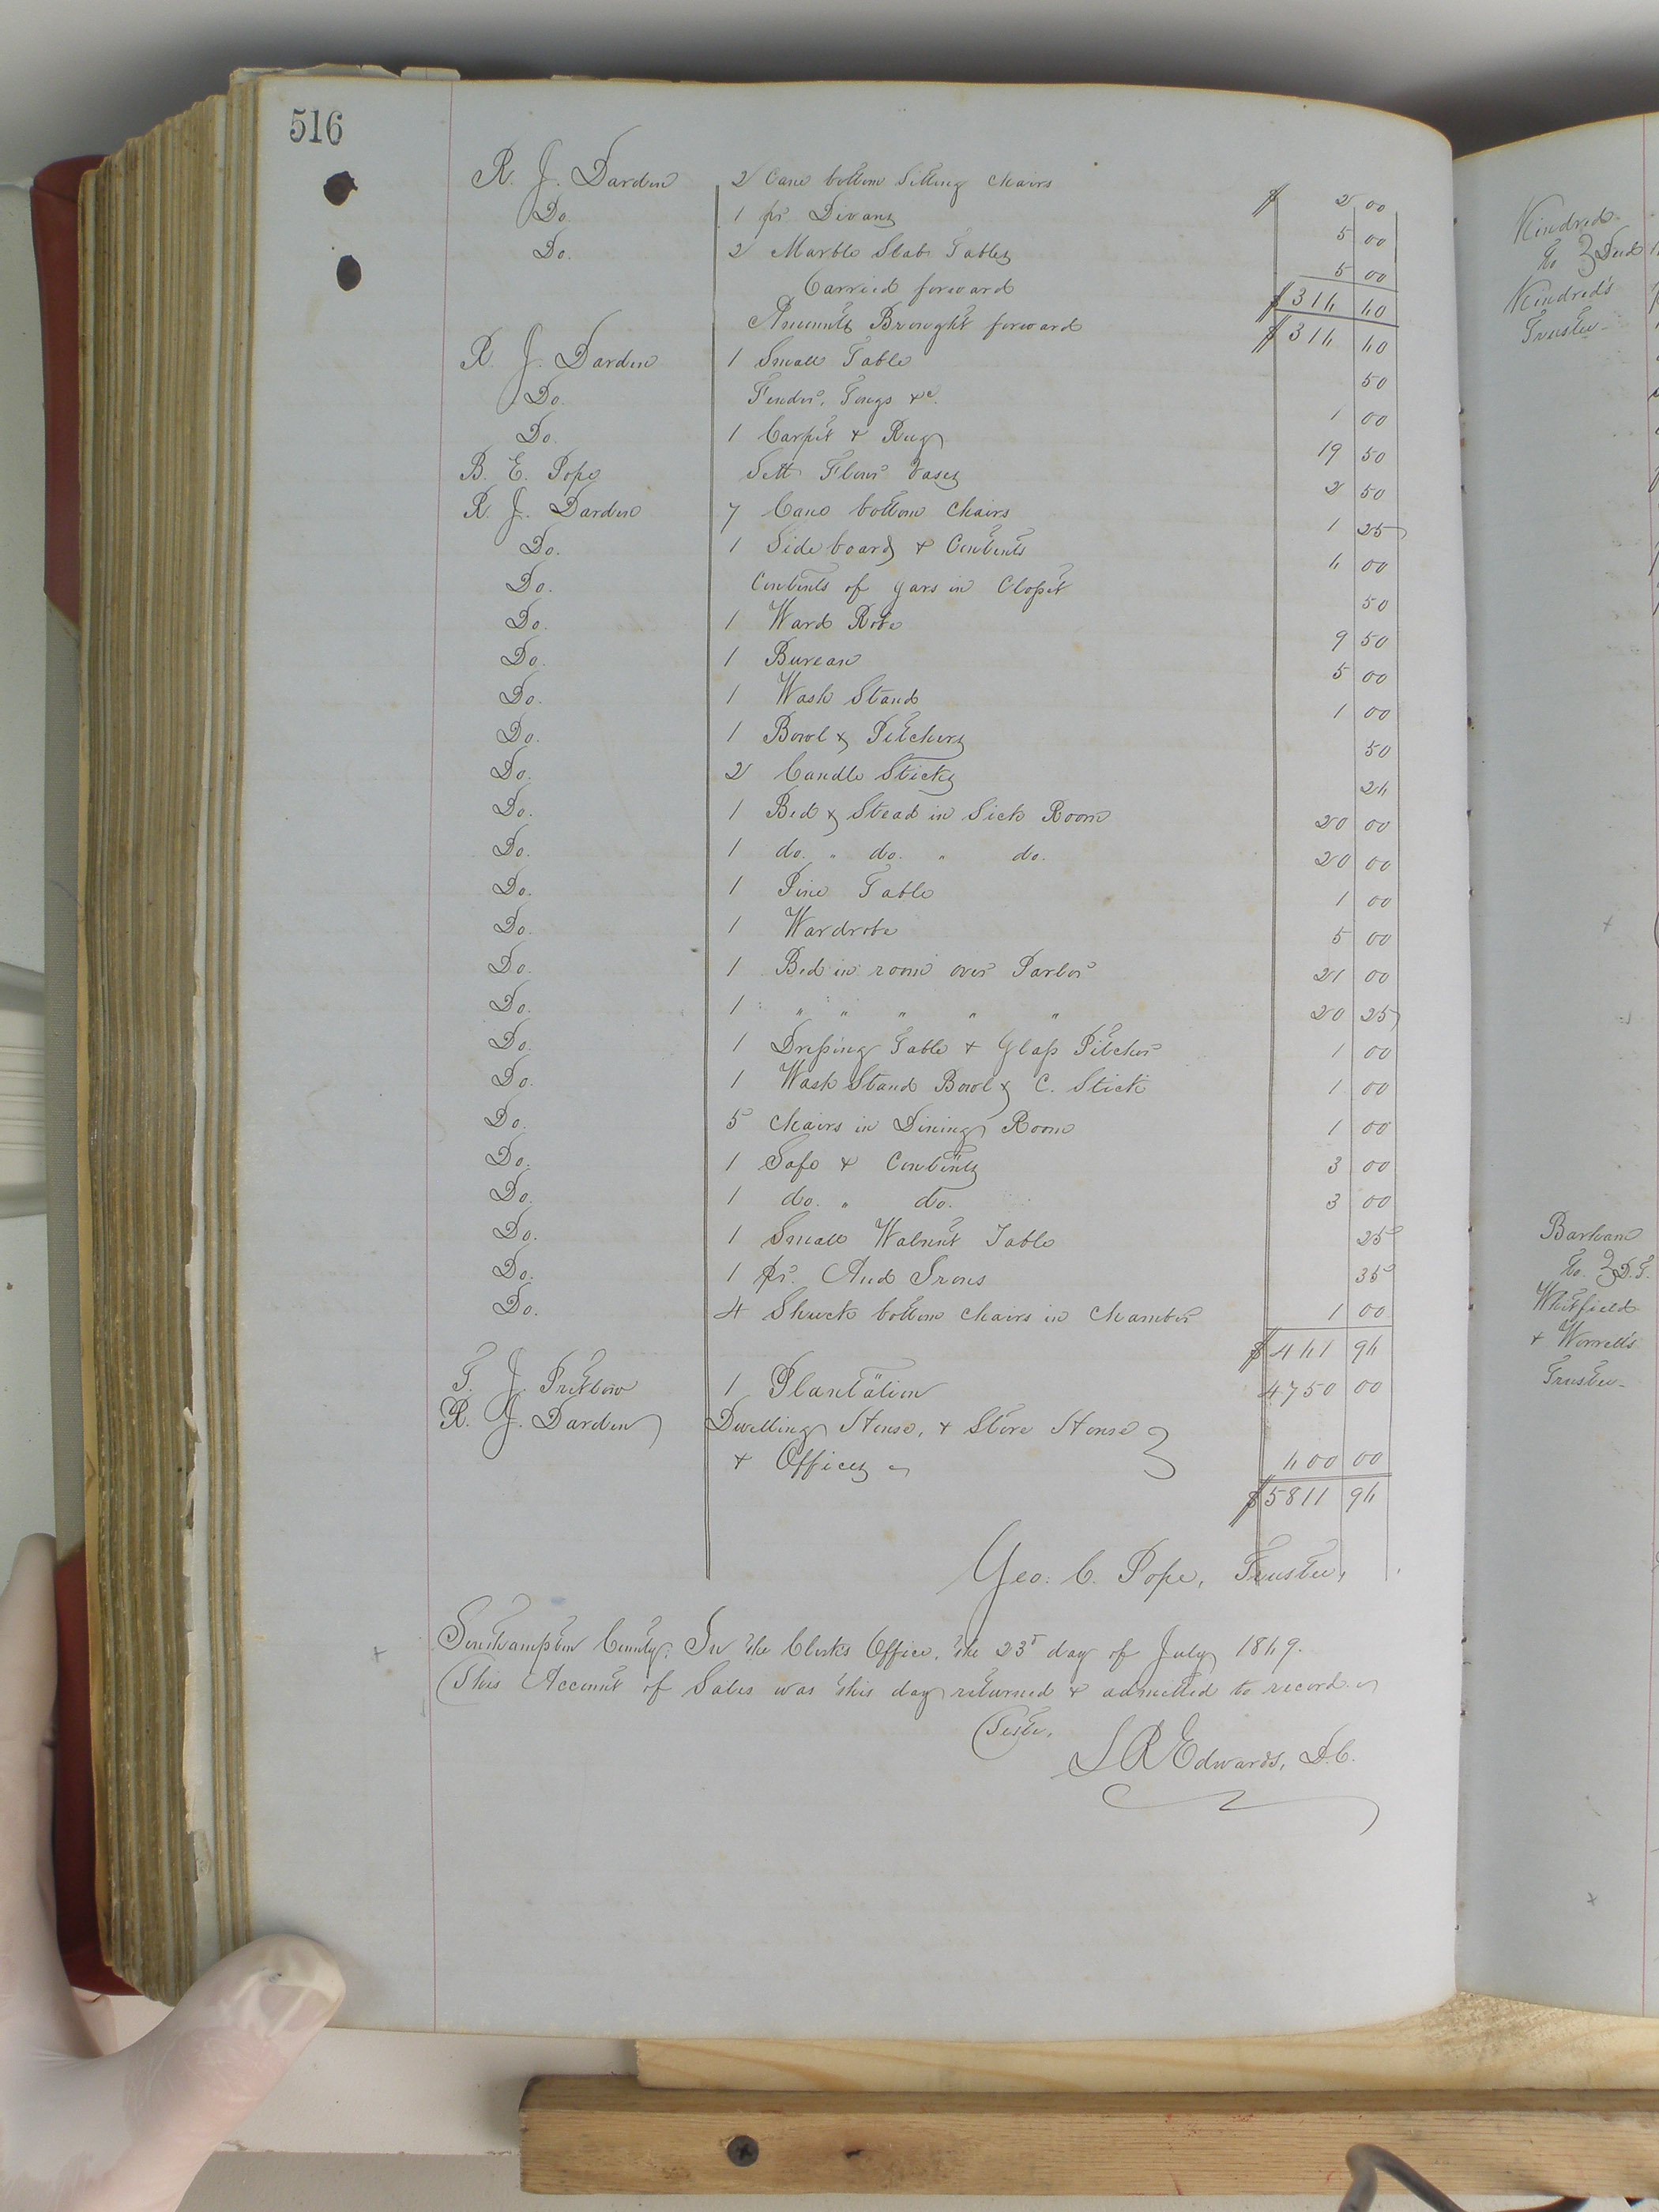 516
R. J. Darden 2 Cane bottom Sitting Chairs $ 2 00
Do. 1 pr Divans 5 00
Do. 2 Marble Slab Tables 5 00
Carried forward $ 314 40
Amounts Brought forward $ 314 40
R. J. Darden 1 Small Table 50
Do. Fender, Tongs &c. 1 00
Do. 1 Carpet & Rug 19 50
B. E. Pope Sett Flower Vases 2 50
R. J. Darden 7 Cane bottom Chairs 1 25
Do. 1 Side board & Contents 4 00
Do. Contents of Jars in Closet 50
Do. 1 Ward Robe 9 50
Do. 1 Bureau 5 00
Do. 1 Wash Stand 1 00
Do. 1 Bowl & Pitchers 50
Do. 2 Candle Sticks 24
Do. 1 Bed & Stead in Sick Room 20 00
Do. 1 do. " do. " do. 20 00
Do. 1 Pine Table 1 00
Do. 1 Wardrobe 5 00
Do. 1 Bed in room over Parlor 21 00
Do. 1 " " " " " 20 25
Do. 1 Dressing Table & Glass Pitcher 1 00
Do. 1 Wash Stand Bowl & C. Stick 1 00
Do. 5 Chairs in Dining Room 1 00
Do. 1 Safe & Contents 3 00
Do. 1 do. " do. 3 00
Do. 1 Small Walnut Table 25
Do. 1 pr. And Irons 35
Do. 4 Shuck bottom Chairs in Chamber 1 00
$ 441 94
T. J. Pretlow 1 Plantation 4750 00
R. J. Darden Dwelling House, & Store House
& Offices 400 00
$ 5811 94
Geo: C. Pope, Trustee,
Southampton County: In the Clerks Office, the 23d day of July 1849.
This Account of Sales was this day returned & admitted to record.
Teste,
L R Edwards, D.C.
Kindred
to } Deed
Kindred's
Trustee
Barham
to } D.T.
Whitfield
& Worrell's
Trustee